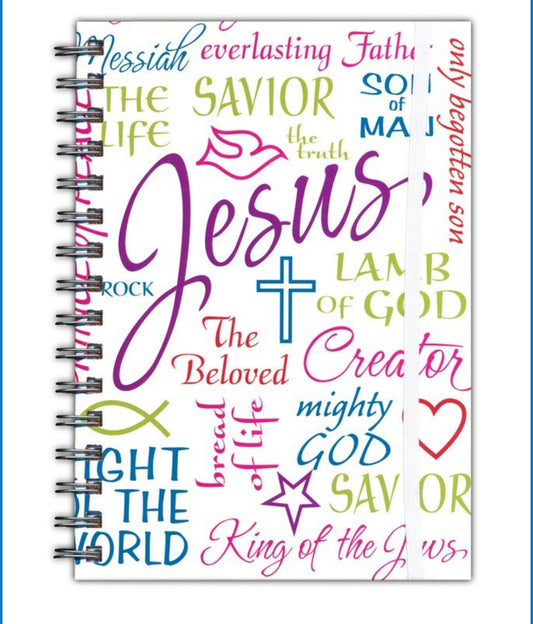 Messiah
everlasting Father
only begotten son
THE
LIFE
SAVIOR
SON
of
MAN
the
truth
Jesus
PRINCE OF PEACE
ROCK
LAMB
OF GOD
The
Beloved
Creator
bread
of life
mighty
GOD
LIGHT
OF THE
WORLD
SAVIOR
King of the Jews